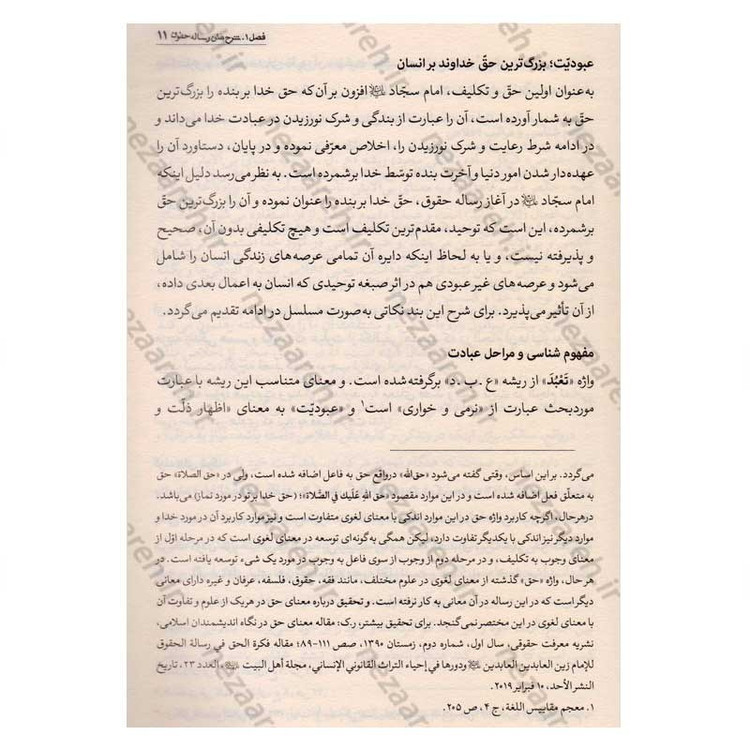 فصل ۱. شرح متن رساله حقوق ۱۱
عبودیّت؛ بزرگ‌ترین حقّ خداوند بر انسان
به‌عنوان اولین حقّ و تکلیف، امام سجّاد افزون بر آن‌که حق خدا بر بنده را بزرگ‌ترین
حقّ به شمار آورده است، آن را عبارت از بندگی و شرک نورزیدن در عبادت خدا می‌داند و
در ادامه شرط رعایت و شرک نورزیدن را، اخلاص معرّفی نموده و در پایان، دستاورد آن را
عهده‌دار شدن امور دنیا و آخرت بنده توسّط خدا برشمرده است. به نظر می‌رسد دلیل اینکه
امام سجّاد در آغاز رساله حقوق، حقّ خدا بر بنده را عنوان نموده و آن را بزرگ‌ترین حقّ
برشمرده، این است که توحید، مقدم‌ترین تکلیف است و هیچ تکلیفی بدون آن، صحیح
و پذیرفته نیست، و یا به لحاظ اینکه دایره آن تمامی عرصه‌های زندگی انسان را شامل
می‌شود و عرصه‌های غیرعبودی هم در اثر صبغه توحیدی که انسان به اعمال بعدی داده،
از آن تأثیر می‌پذیرد. برای شرح این بند نکاتی به‌صورت مسلسل در ادامه تقدیم می‌گردد.
مفهوم شناسی و مراحل عبادت
واژه «تَعْبُدَ» از ریشه «ع . ب . د» برگرفته شده است. و معنای متناسب این ریشه با عبارت
موردبحث عبارت از «نرمی و خواری» است۱ و «عبودیّت» به معنای «اظهار ذلّت و
می‌گردد. بر این اساس، وقتی گفته می‌شود «حق‌الله» درواقع حق به فاعل اضافه شده است، ولی در «حق الصلاة» حق
به متعلّق فعل اضافه شده است و در این موارد مقصود «حق اللهِ عَلَیكَ فی الصَّلاة»؛ (حق خدا بر تو در مورد نماز) می‌باشد.
درهرحال، اگرچه کاربرد واژه حق در این موارد اندکی با معنای لغوی متفاوت است و نیز موارد کاربرد آن در مورد خدا و
موارد دیگر نیز اندکی با یکدیگر تفاوت دارد، لیکن همگی به‌گونه‌ای توسعه در معنای لغوی است که در مرحله اوّل از
معنای وجوب به تکلیف، و در مرحله دوم از وجوب از سوی فاعل به وجوب در مورد یک شیء توسعه یافته است. در
هر حال، واژه «حق» گذشته از معنای لغوی در علوم مختلف، مانند فقه، حقوق، فلسفه، عرفان و غیره دارای معانی
دیگر است که در این رساله در آن معانی به کار نرفته است. و تحقیق درباره معنای حق در هریک از علوم و تفاوت آن
با معنای لغوی در این مختصر نمی‌گنجد. برای تحقیق بیشتر، ر.ک: مقاله معنای حق در نگاه اندیشمندان اسلامی،
نشریه معرفت حقوقی، سال اول، شماره دوم، زمستان ۱۳۹۰، صص ۱۱۱-۸۹؛ مقاله فکرة الحق في رسالة الحقوق
للإمام زين العابدين العابدين ودورها في إحياء التراث القانوني الإنساني، مجلة أهل البيت، العدد ۲۳، تاریخ
النشر الأحد، ۱۰ فبراير ۲۰۱۹.
۱. معجم مقاييس اللغة، ج ۴، ص ۲۰۵.
nezaareh.ir